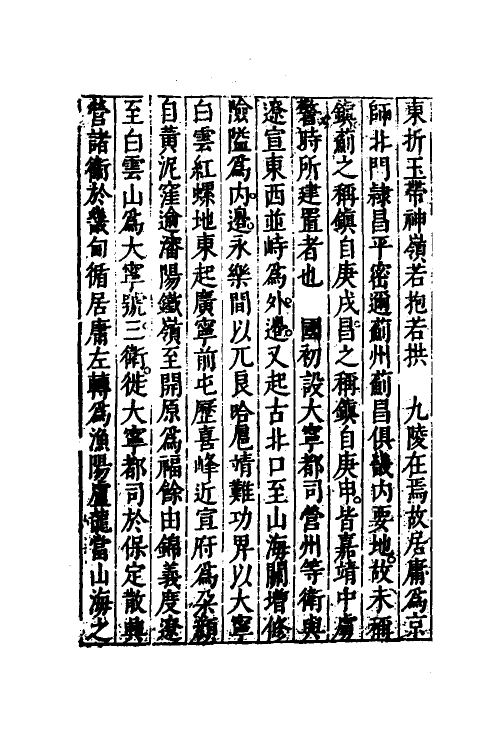 東折玉帶神嶺若抱若拱　九陵在焉故居庸爲京
師北門隷昌平密邇薊州薊昌俱畿内要地故未稱
鎮薊之稱鎮自庚戌昌之稱鎮自庚申皆嘉靖中虜
警時所建置者也　國初設大寧都司營州等衛與
遼宣東西並峙爲外邊又起古北口至山海關增修
險隘爲内邊永樂間以兀良哈扈靖難功畀以大寧
白雲紅螺地東起廣寧前屯歷喜峰近宣府爲朶顏
自黃泥窪逾瀋陽鐵嶺至開原爲福餘由錦義度遼
至白雲山爲大寧號三衛徙大寧都司於保定散與
營諸衛於畿甸循居庸左轉爲漁陽盧龍當山海之